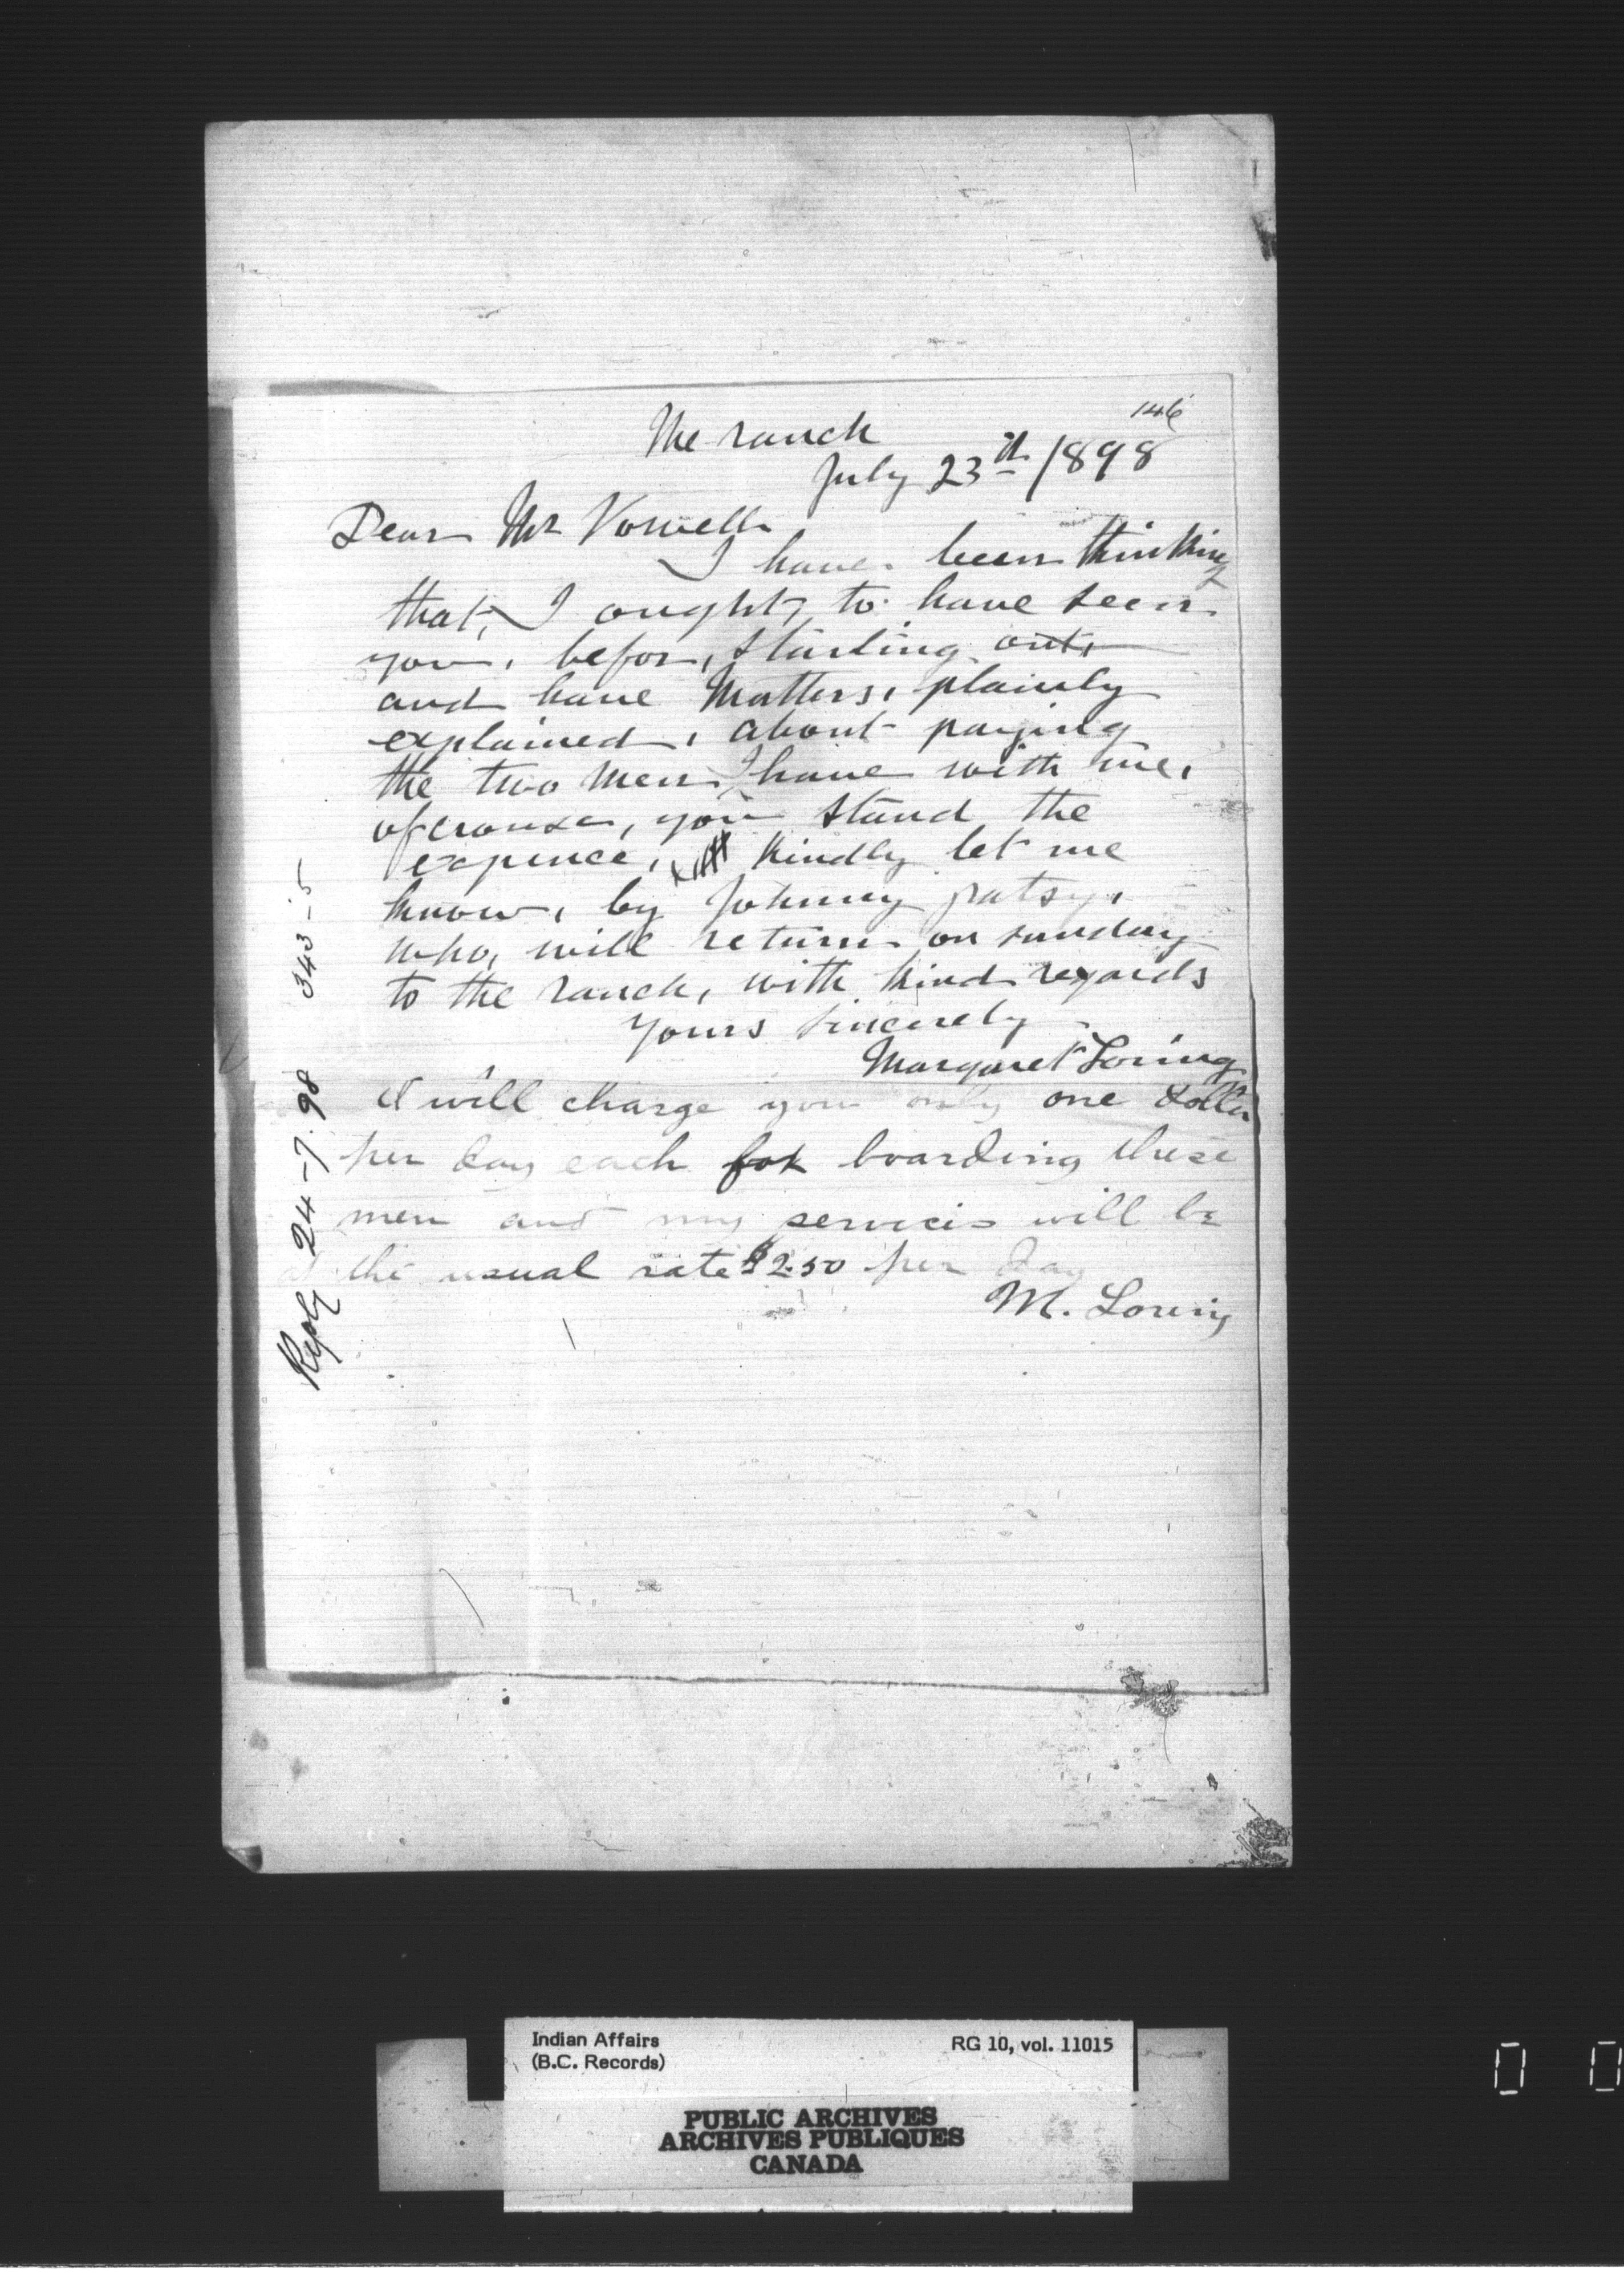 146
The ranch
July 23th 1898
Dear Mr Vowell
I have been thinking
that, I ought, to have seen
you, befor, starting out,
and have Matters, plainly
explained, about paying
the two men I have with me,
ofcourse, you stand the
expence, kindly let me
know, by Johnny patsy,
who, will return on sunday
to the ranch, with kind regards
yours sincerely
Margaret Loring
I will charge you only one dollar
per day each for boarding these
men and my services will be
at the usual rate $2.50 per day
M. Loring
Reply 24-7-98 343-5
Indian Affairs
(B.C. Records)
RG 10, vol. 11015
PUBLIC ARCHIVES
ARCHIVES PUBLIQUES
CANADA
0 0